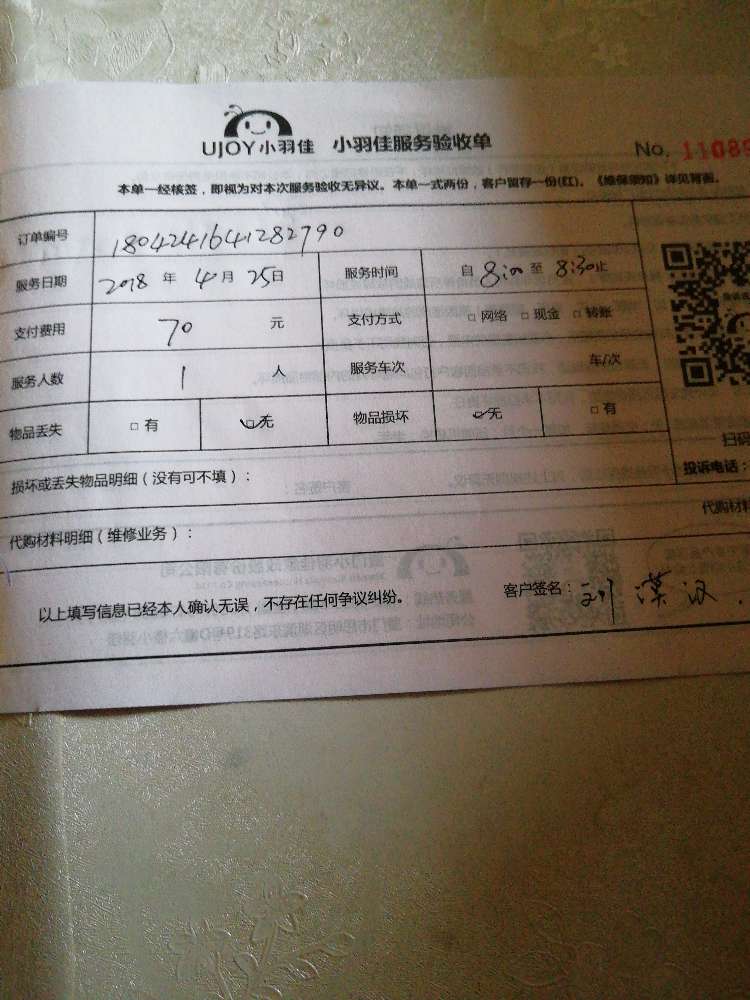 UJOY小羽佳 小羽佳服务验收单 No. 11089
本单一经核签，即视为对本次服务验收无异议。本单一式两份，客户留存一份(红)。《维保须知》详见背面。
订单编号 1804241641282790
服务日期 2018 年 4 月 25 日 服务时间 自 8:00 至 8:30 止
支付费用 70 元 支付方式 □ 网络 □ 现金 □ 转账
服务人数 1 人 服务车次 车/次
物品丢失 □ 有 ☑ 无 物品损坏 ☑ 无 □ 有
扫码
损坏或丢失物品明细（没有可不填）： 投诉电话：
代购材料明细（维修业务）： 代购材料
以上填写信息已经本人确认无误，不存在任何争议纠纷。 客户签名：